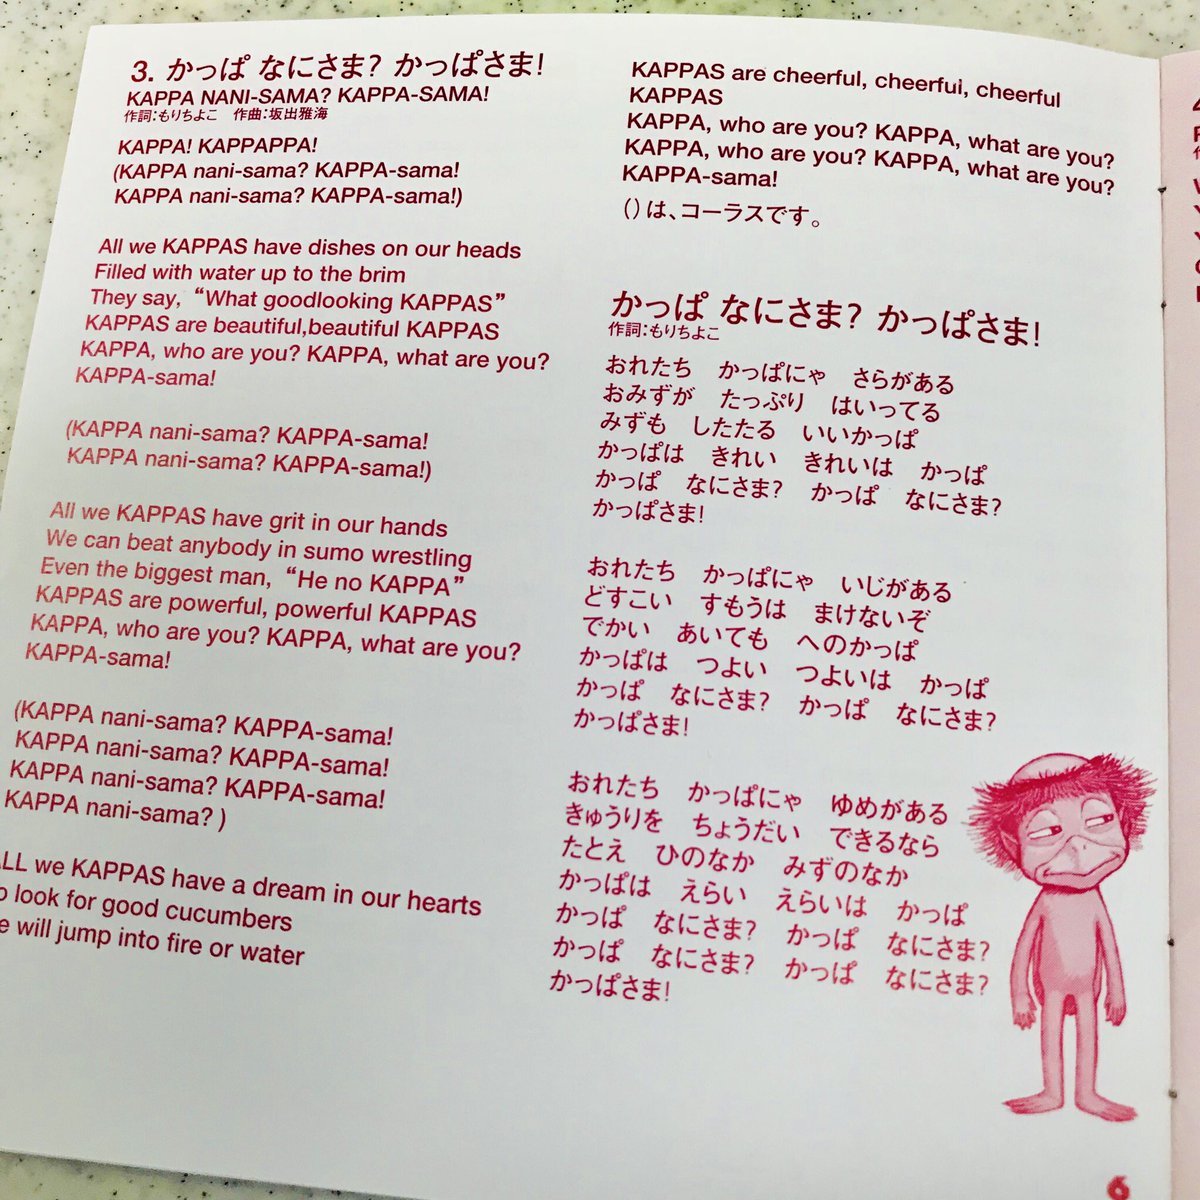 3. かっぱ なにさま? かっぱさま!
KAPPA NANI-SAMA? KAPPA-SAMA!
作詞:もりちよこ 作曲:坂出雅海
KAPPA! KAPPAPPA!
(KAPPA nani-sama? KAPPA-sama!
KAPPA nani-sama? KAPPA-sama!)
All we KAPPAS have dishes on our heads
Filled with water up to the brim
They say, “What goodlooking KAPPAS”
KAPPAS are beautiful,beautiful KAPPAS
KAPPA, who are you? KAPPA, what are you?
KAPPA-sama!
(KAPPA nani-sama? KAPPA-sama!
KAPPA nani-sama? KAPPA-sama!)
All we KAPPAS have grit in our hands
We can beat anybody in sumo wrestling
Even the biggest man, “He no KAPPA”
KAPPAS are powerful, powerful KAPPAS
KAPPA, who are you? KAPPA, what are you?
KAPPA-sama!
(KAPPA nani-sama? KAPPA-sama!
KAPPA nani-sama? KAPPA-sama!
KAPPA nani-sama? KAPPA-sama!
KAPPA nani-sama? )
ALL we KAPPAS have a dream in our hearts
look for good cucumbers
will jump into fire or water
KAPPAS are cheerful, cheerfui, cheerful
KAPPAS
KAPPA, who are you? KAPPA, what are you?
KAPPA, who are you? KAPPA, what are you?
KAPPA-sama!
()は、コーラスです。
かっぱ なにさま? かっぱさま!
作詞:もりちよこ
おれたち かっぱにゃ さらがある
おみずが たっぷり はいってる
みずも したたる いいかっぱ
かっぱは きれい きれいは かっぱ
かっぱ なにさま? かっぱ なにさま?
かっぱさま!
おれたち かっぱにゃ いじがある
どすこい すもうは まけないぞ
でかい あいても へのかっぱ
かっぱは つよい つよいは かっぱ
かっぱ なにさま? かっぱ なにさま?
かっぱさま!
おれたち かっぱにゃ ゆめがある
きゅうりを ちょうだい できるなら
たとえ ひのなか みずのなか
かっぱは えらい えらいは かっぱ
かっぱ なにさま? かっぱ なにさま?
かっぱ なにさま? かっぱ なにさま?
かっぱさま!
6